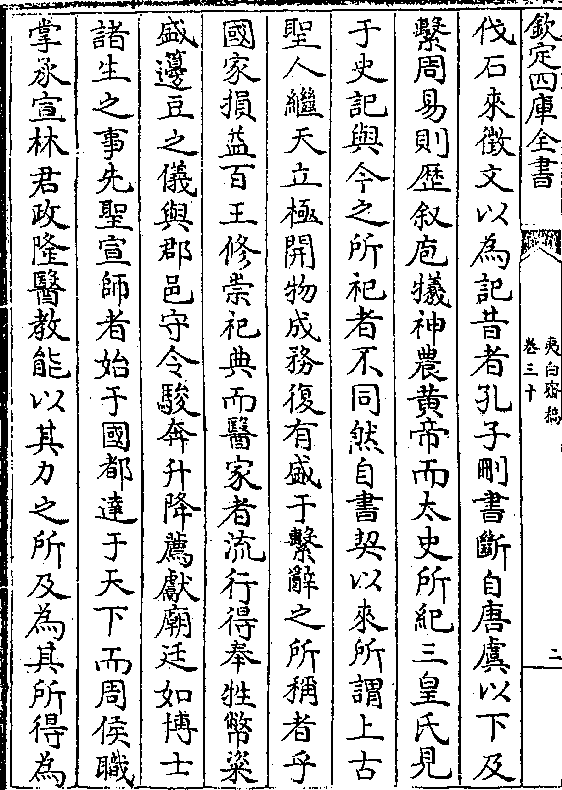 欽定四庫全書
夷白齋稿
卷三十
二
伐石來徵文以為記昔者孔子刪書斷自唐虞以下及
繫周易則歴叙庖犧神農黄帝而太史所紀三皇氏見
于史記與今之所祀者不同然自書契以來所謂上古
聖人繼天立極開物成務復有盛于繫辭之所稱者乎
國家損益百王修崇祀典而醫家者流行得奉牲幣粢
盛籩豆之儀與郡邑守令駿奔升降薦獻廟廷如博士
諸生之事先聖宣師者始于國都達于天下而周侯職
掌承宣林君政隆醫教能以其力之所及為其所得為